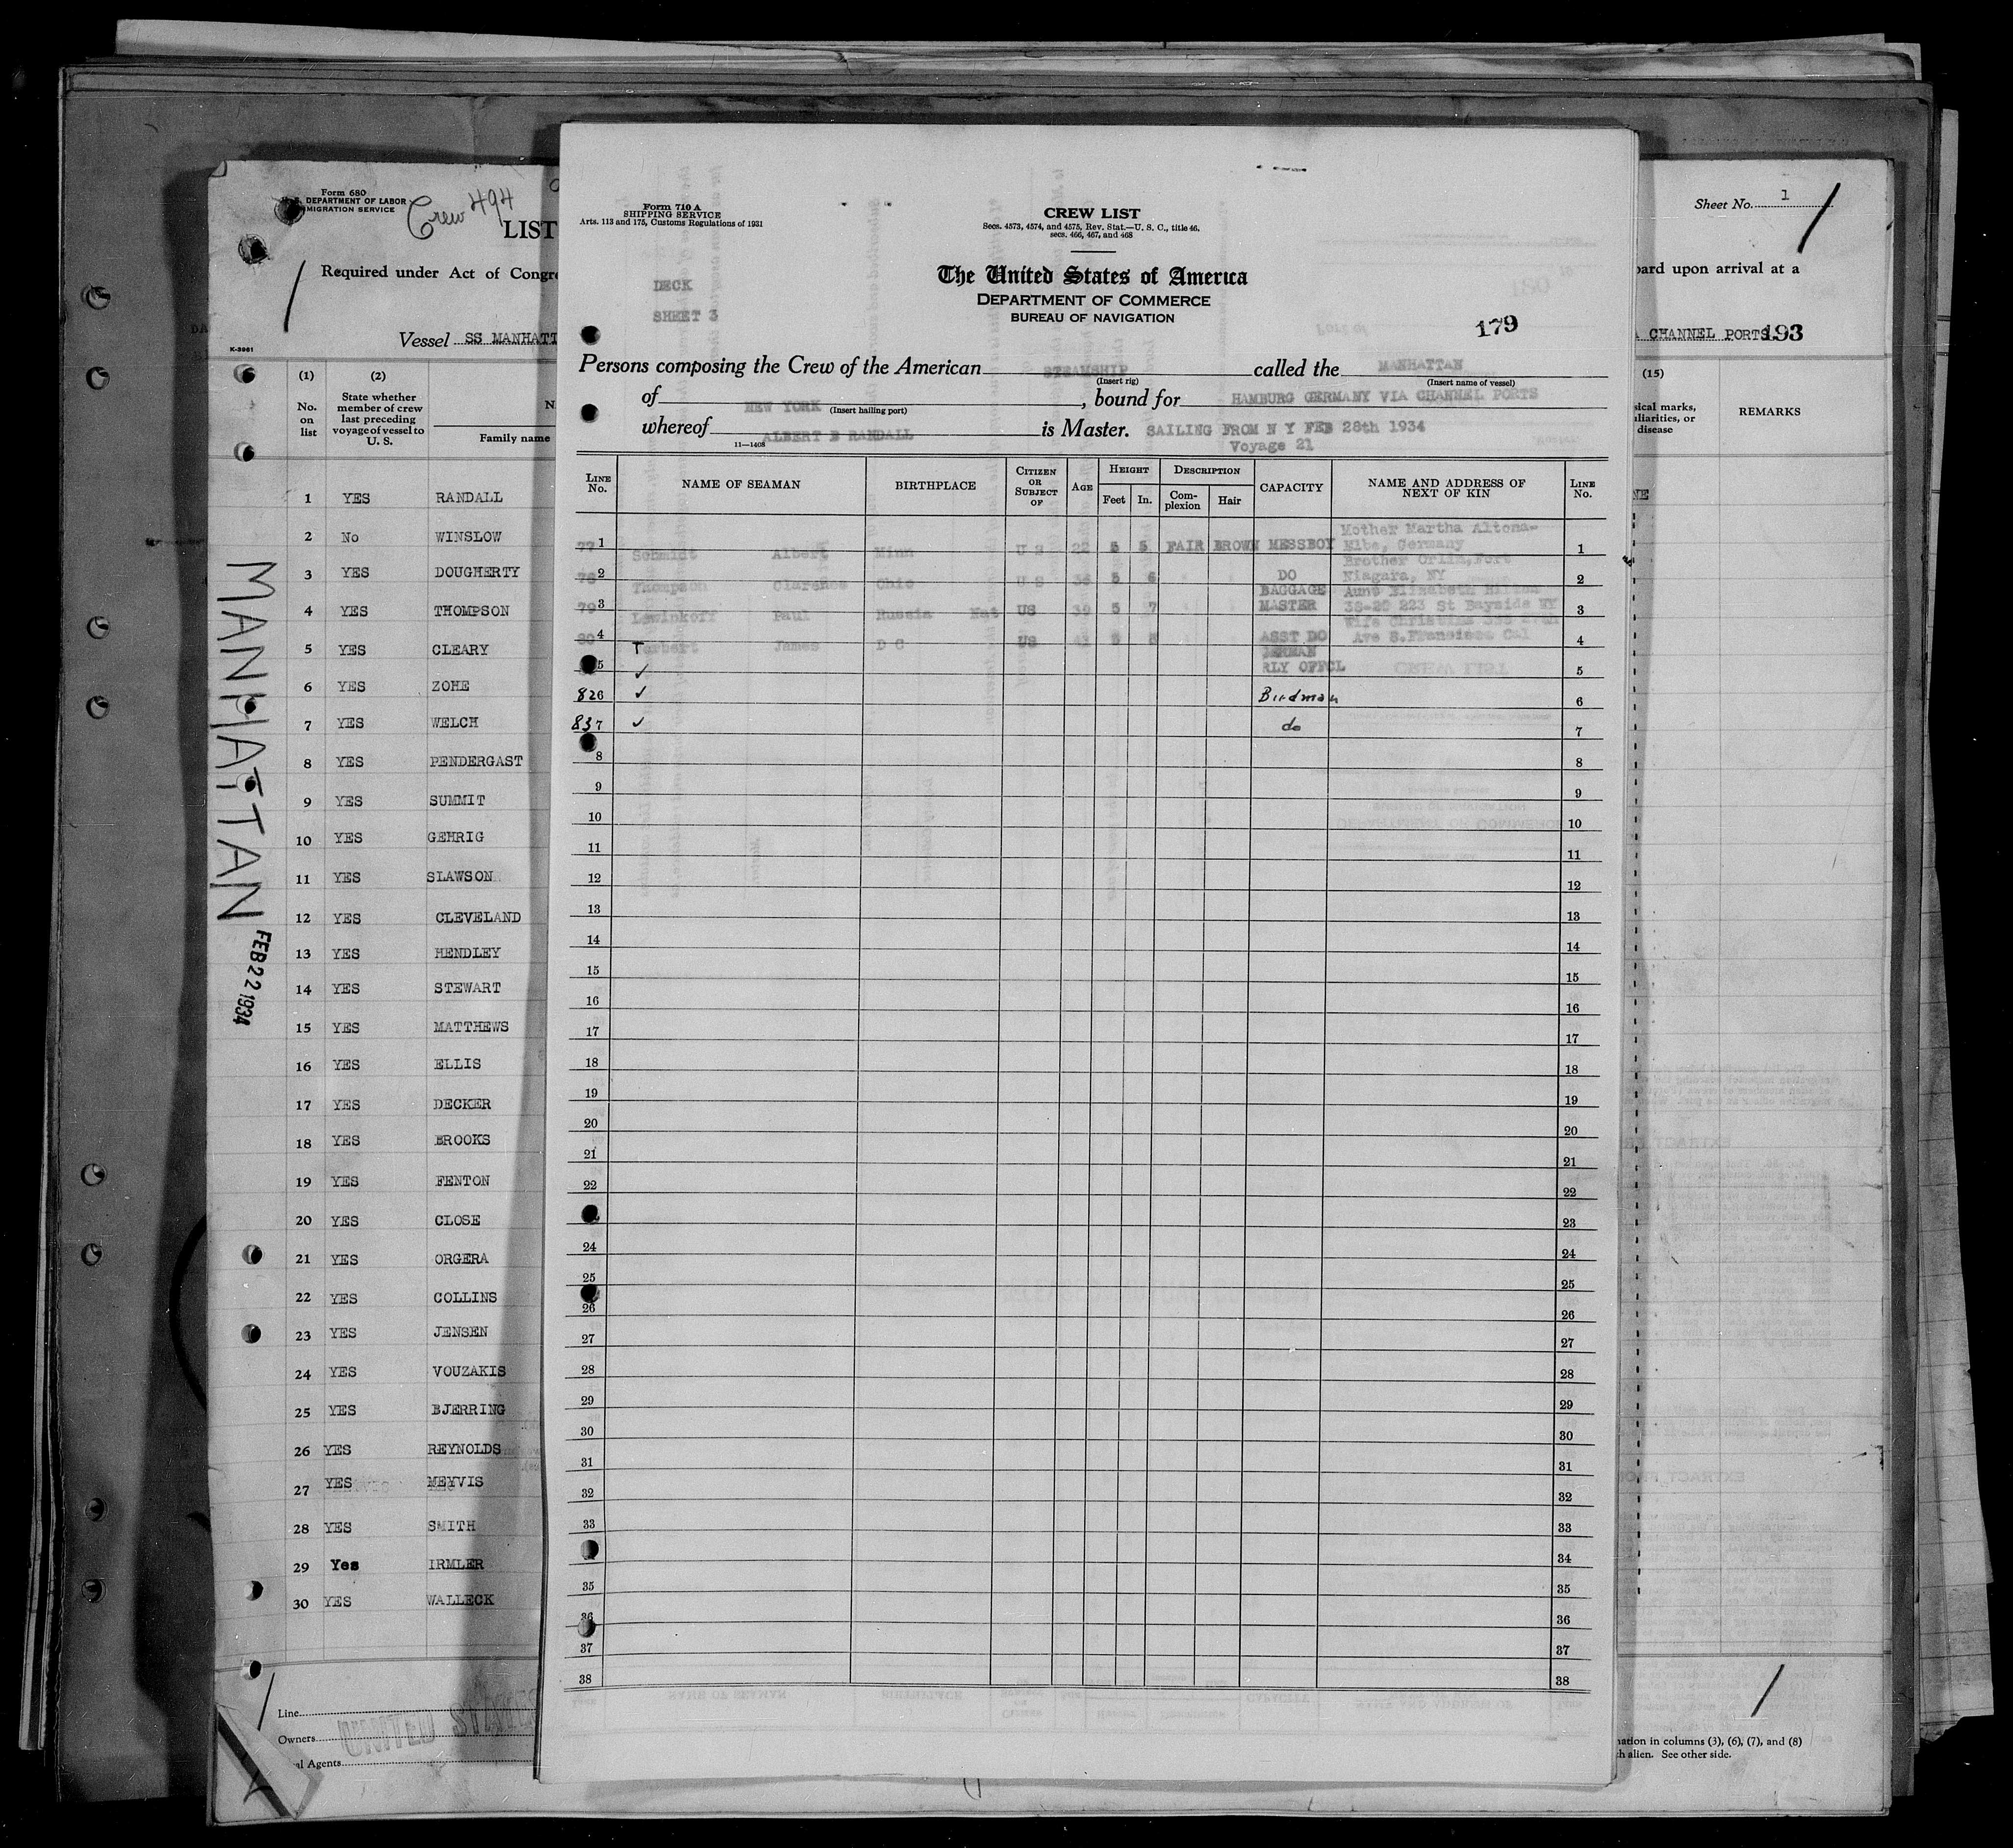 Form 680
DEPARTMENT OF LABOR
MIGRATION SERVICE
Crew 494
LIST
Required under Act of Congre
Vessel SS MANHATT
K-3961
(1) (2)
No. on list
State whether member of crew last preceding voyage of vessel to U. S.
Family name
1 YES RANDALL
2 No WINSLOW
3 YES DOUGHERTY
4 YES THOMPSON
5 YES CLEARY
6 YES ZOHE
7 YES WELCH
8 YES PENDERGAST
9 YES SUMMIT
10 YES GEHRIG
11 YES SLAWSON
12 YES CLEVELAND
13 YES HENDLEY
14 YES STEWART
15 YES MATTHEWS
16 YES ELLIS
17 YES DECKER
18 YES BROOKS
19 YES FENTON
20 YES CLOSE
21 YES ORGERA
22 YES COLLINS
23 YES JENSEN
24 YES VOUZAKIS
25 YES BJERRING
26 YES REYNOLDS
27 YES MEYVIS
28 YES SMITH
29 Yes IRMLER
30 YES WALLECK
MANHATTAN
FEB 22 1934
Line
Owners
al Agents
UNITED STATES
Form 710 A
SHIPPING SERVICE
Arts. 113 and 175, Customs Regulations of 1931
DECK
SHEET 3
CREW LIST
Secs. 4573, 4574, and 4575, Rev. Stat.—U. S. C., title 46,
secs. 466, 467, and 468
The United States of America
DEPARTMENT OF COMMERCE
BUREAU OF NAVIGATION
179
Persons composing the Crew of the American STEAMSHIP called the MANHATTAN
(Insert rig) (Insert name of vessel)
of NEW YORK, bound for HAMBURG GERMANY VIA CHANNEL PORTS
(Insert hailing port)
whereof ALBERT B RANDALL is Master. SAILING FROM N Y FEB 28th 1934
11—1408 Voyage 21
LINE No. NAME OF SEAMAN BIRTHPLACE CITIZEN OR SUBJECT OF AGE HEIGHT Feet In. DESCRIPTION Complexion Hair CAPACITY NAME AND ADDRESS OF NEXT OF KIN LINE No.
77 1 Schmidt Albert Minn U S 22 5 5 FAIR BROWN MESSBOY Mother Martha Altona-Elbe, Germany 1
78 2 Thompson Clarence Ohio U S 36 5 6 DO Brother Orlin, Fort Niagara, NY 2
79 3 Lewinkoff Paul Russia Nat US 39 5 7 BAGGAGE MASTER Aunt Elizabeth 38-20 223 St Bayside NY 3
80 4 Torbert James D C US 43 5 ASST DO Wife Christine Ave S.Francisco Cal 4
5 ✓ GERMAN RLY OFFCL 5
82 6 ✓ Birdman 6
83 7 ✓ do 7
8 8
9 9
10 10
11 11
12 12
13 13
14 14
15 15
16 16
17 17
18 18
19 19
20 20
21 21
22 22
23
24 24
25 25
26 26
27 27
28 28
29 29
30 30
31 31
32 32
33 33
34
35 35
36 36
37 37
38 38
Sheet No. 1
oard upon arrival at a
A CHANNEL PORTS 193
(15)
sical marks,
iliarities, or
disease
REMARKS
NE
nation in columns (3), (6), (7), and (8)
ch alien. See other side.